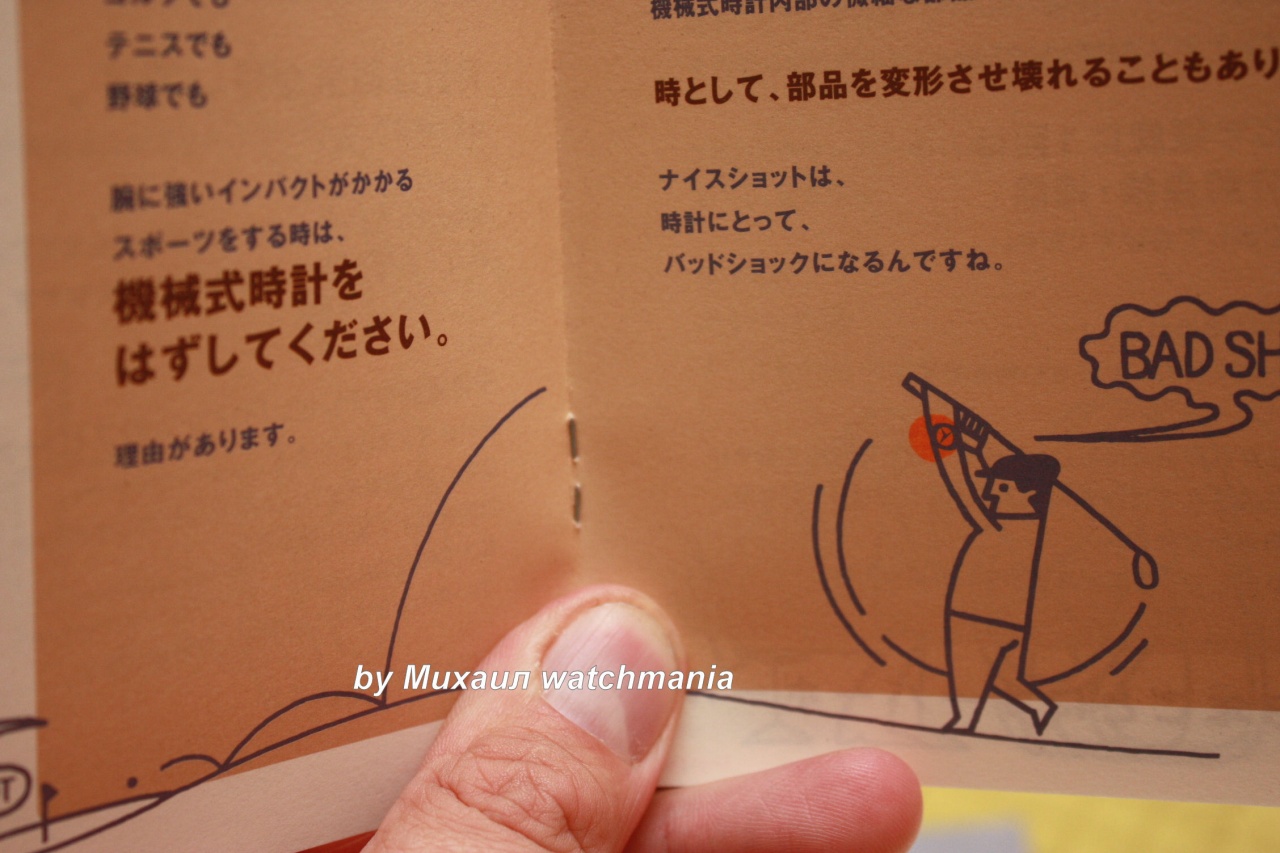 テニスでも
野球でも
腕に強いインパクトがかかる
スポーツをする時は、
機械式時計を
はずしてください。
理由があります。
時として、部品を変形させ壊れることもあり
ナイスショットは、
時計にとって、
バッドショックになるんですね。
BAD SH
by Михаил watchmania